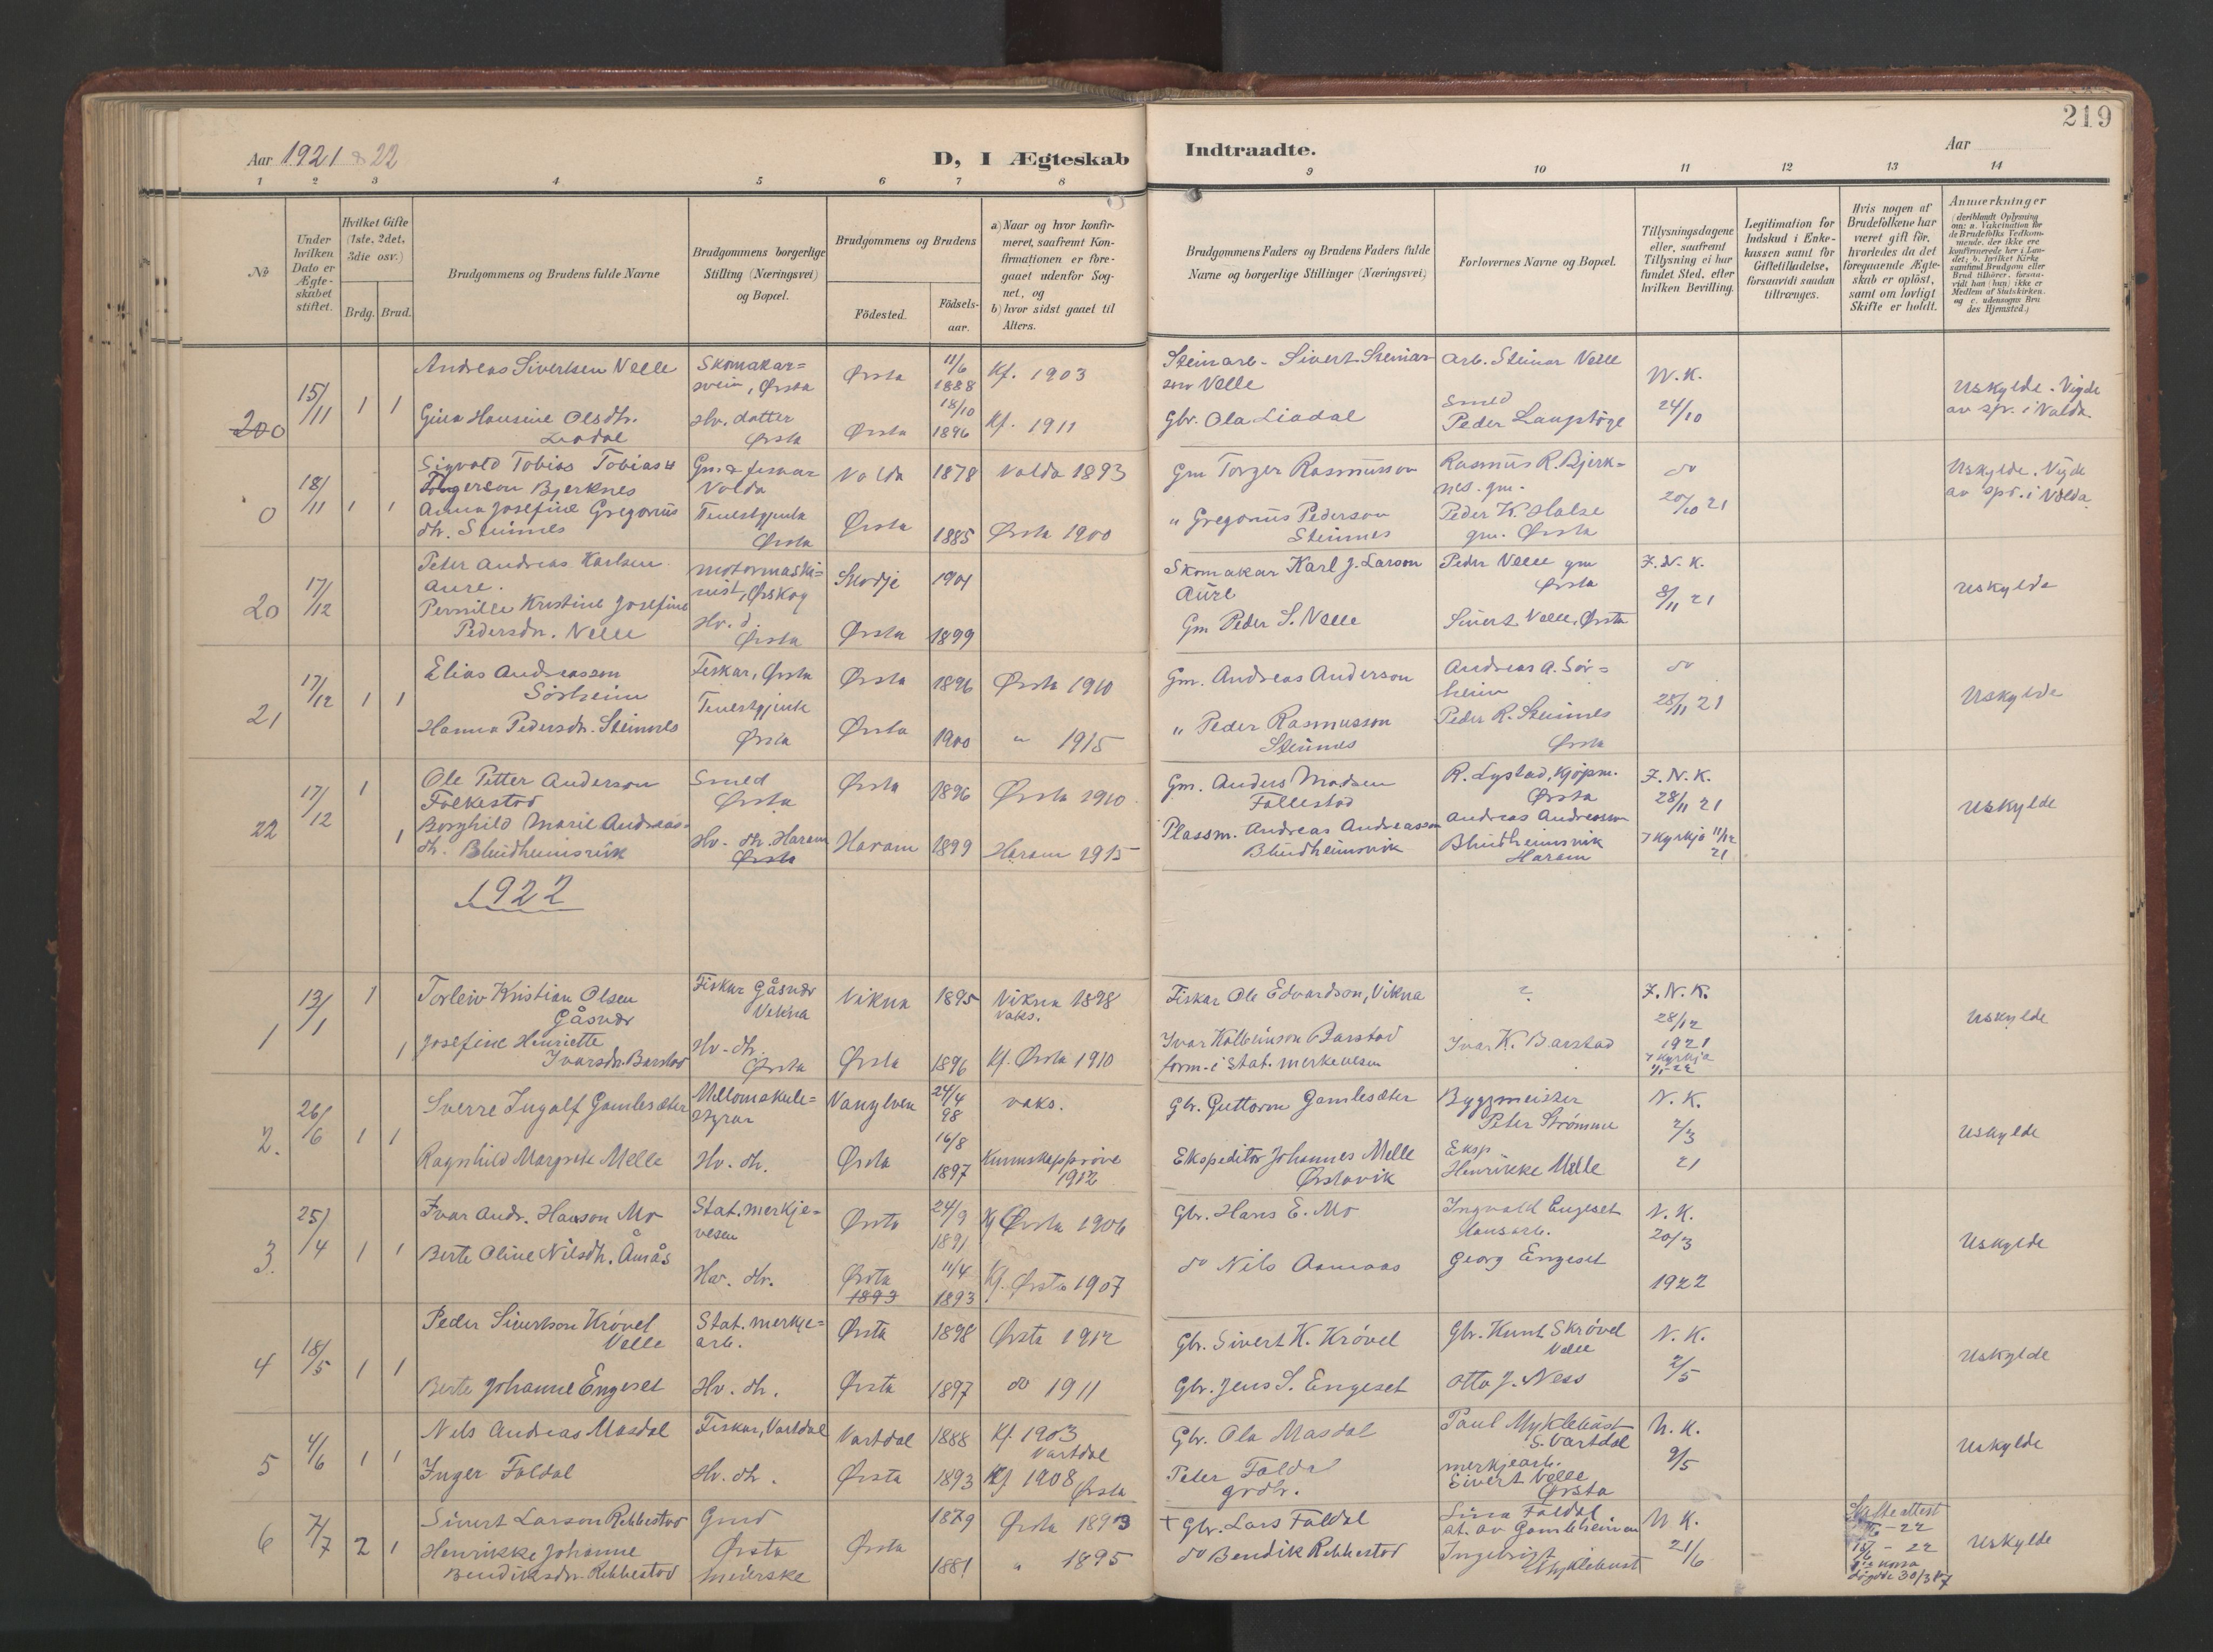 219
Aar 1921 & 22
D, I Ægteskab Indtraadte.
Aar
1 2 3 4 5 6 7 8 9 10 11 12 13 14
No
Under hvilken Dato er Ægteskabet stiftet.
Hvilket Gifte (1ste, 2det, 3die osv.)
Brdg. Brud.
Brudgommens og Brudens fulde Navne
Brudgommens borgerlige Stilling (Næringsvei) og Bopæl.
Brudgommens og Brudens
Födested.
Födselsaar.
a) Naar og hvor konfirmeret, saafremt Konfirmationen er foregaaet udenfor Sognet, og
b) hvor sidst gaaet til Alters.
Brudgommens Faders og Brudens Faders fulde Navne og borgerlige Stillinger (Næringsvei)
Forlovernes Navne og Bopæl.
Tillysningsdagene eller, saafremt Tillysning ei har fundet Sted, efter hvilken Bevilling.
Legitimation for Indskud i Enkekassen samt for Giftetilladelse, forsaavidt saadan tiltrænges.
Hvis nogen af Brudefolkene har været gift för, hvorledes da det foregaaende Ægteskab er oplöst, samt om lovligt Skifte er holdt.
Anmærkninger
(deriblandt Oplysning om: a. Vakcination for de Brudefolks Vedkommende, der ikke ere konfirmerede her i Landet; b. hvilket Kirkesamfund Brudgom eller Brud tilhörer, forsaavidt han (hun) ikke er Medlem af Statskirken, og c. udensogns Brudes Hjemsted.)
200 15/11 1 1
Andreas Sivertsen Velle Skomakar=svein, Ørsta Ørsta 11/6 1888 Kf. 1903
Steinarb. Sivert Steinarson Velle arb. Steinar Velle N.K. Uskylde. Vigde
Gina Hansine Olsdtr. Liadal Hv. datter Ørsta Ørsta 18/10 1896 Kf. 1911
Gbr. Ola Liadal Smed Peder Laupsöge 24/10 av spr. i Volda
0 18/11 1 1
Sigvald Tobias Tobias Torgerson Bjerknes Gm. & fiskar Volda Volda 1878 Volda 1893
Gm Torger Rasmusson Rasmus R. Bjerk=nes. gm. do Uskylde. Vigde
Anna Josefine Gregorius dtr. Steinnes Tenestgjenta Ørsta Ørsta 1885 Ørsta 1900
" Gregorius Pederson Steinnes Peder K. Halse gm. Ørsta 20/10 21 av spr. i Volda
20 17/12
Peter Andreas Karlsen Aure. Motormaski=nist, Ørskog Skodje 1901
Skomakar Karl J. Larson Aure Peder Velle gm Ørsta F.N.K. Uskylde
Pernille Kristine Josefine Pedersdn. Velle Hv. d. Ørsta Ørsta 1899
Gm Peder S. Velle Sivert Velle, Ørsta 8/11 21
21 17/12 1 1
Elias Andreasson Sörheim Fiskar, Ørsta Ørsta 1896 Ørsta 1910
Gm. Andreas Anderson Andreas A. Sör=heim do Uskylde
Hanna Pedersdn. Steinnes Tenestgjenta Ørsta Ørsta 1900 " 1915
" Peder Rasmusson Steinnes Peder R. Steinnes Ørsta 28/11 21
22 17/12 1 1
Ole Petter Anderson Folkestad Smed Ørsta Ørsta 1896 Ørsta 1910
Gm. Anders Madsen Follestad R. Lystad, Kjöpm. Ørsta F.N.K. 28/11 21 Uskylde
Borghild Marie Andreas dt. Blindheimsvik Hv. dtr. Haram Ørsta Haram 1899 Haram 1915
Plassm. Andreas Andreasson Blindheimsvik Andreas Andreasson Blindheimsvik Haram I Kyrkja 11/12 21
1922
1 13/1 1 1
Torleiv Kristian Olsen Gåsvær Fiskar Gåsvær Vikna Vikna 1895 Vikna 1898 Vaks.
Fiskar Ole Edvardson, Vikna ? F.N.K. 28/12 1921 Uskylde
Josefine Henriette Ivarsdn. Barstad Hv-dtr. Ørsta Ørsta 1896 Kf. Ørsta 1910
Ivar Kolbeinson Barstad form. i Stat. merkevesen Ivar K. Barstad I Kyrkja 1/1-22
2. 26/6 1 1
Sverre Ingolf Gamlesæter Vanylven 24/4 98 vaks.
Gbr. Guttorm Gamlesæter Byggmeister Peter Strømme N.K. 2/3 Uskylde
Ragnhild Margrete Melle Hv. dt. Ørsta 16/8 1897 Kunnskapprøve 1912
Ekspeditør Johannes Melle Ørstavik Eksp Henrikke Melle 21
3. 25/4 1 1
Ivar Andr. Hanson Mo Stat. merkje=vesen Ørsta 24/9 1891 Kf Ørsta 1906
Gbr. Hans E. Mo Ingvald Engeset N.K. 20/3 Uskylde
Berte Oline Nilsdtr. Åmås Hv. dtr. Ørsta 1893 11/4 1893 Kf. Ørsta 1907
do Nils Aamaas Georg Engeset 1922
4 18/5 1 1
Peder Sivertson Krövel Velle Stat. merkje=arb. Ørsta 1898 Ørsta 1912
Gbr. Sivert K. Krövel Gbr. Knut Skrövel Velle N.K. Uskylde
Berte Johanne Engeset Hv. dt. Ørsta 1897 do 1911
Gbr. Jens S. Engeset Otto J. Ness 2/5
5 4/6 1 1
Nils Andreas Masdal Fiskar, Vartdal Vartdal 1888 Kf. 1903 Vartdal
Gbr. Ola Masdal Paul Myklebust S. Vartdal N.K. Uskylde
Inger Foldal Hv. dt. Ørsta 1893 Kf 1908 Ørsta
Peter Foldal grdbr. merkjearb. Sivert Velle Ørsta 9/5
6 7/7 2 1
Sivert Larson Rebbestad Gmd Ørsta Ørsta 1879 Ørsta 1893
+ Gbr. Lars Foldal Lina Foldal N K. Skifteattest Uskylde
Henrikke Johanne Bendiksdn. Rebbestad meierske 1881 " 1895
do Bendik Rebbestad Ingebrigt Myklebust 21/6 döydde 30/3 17